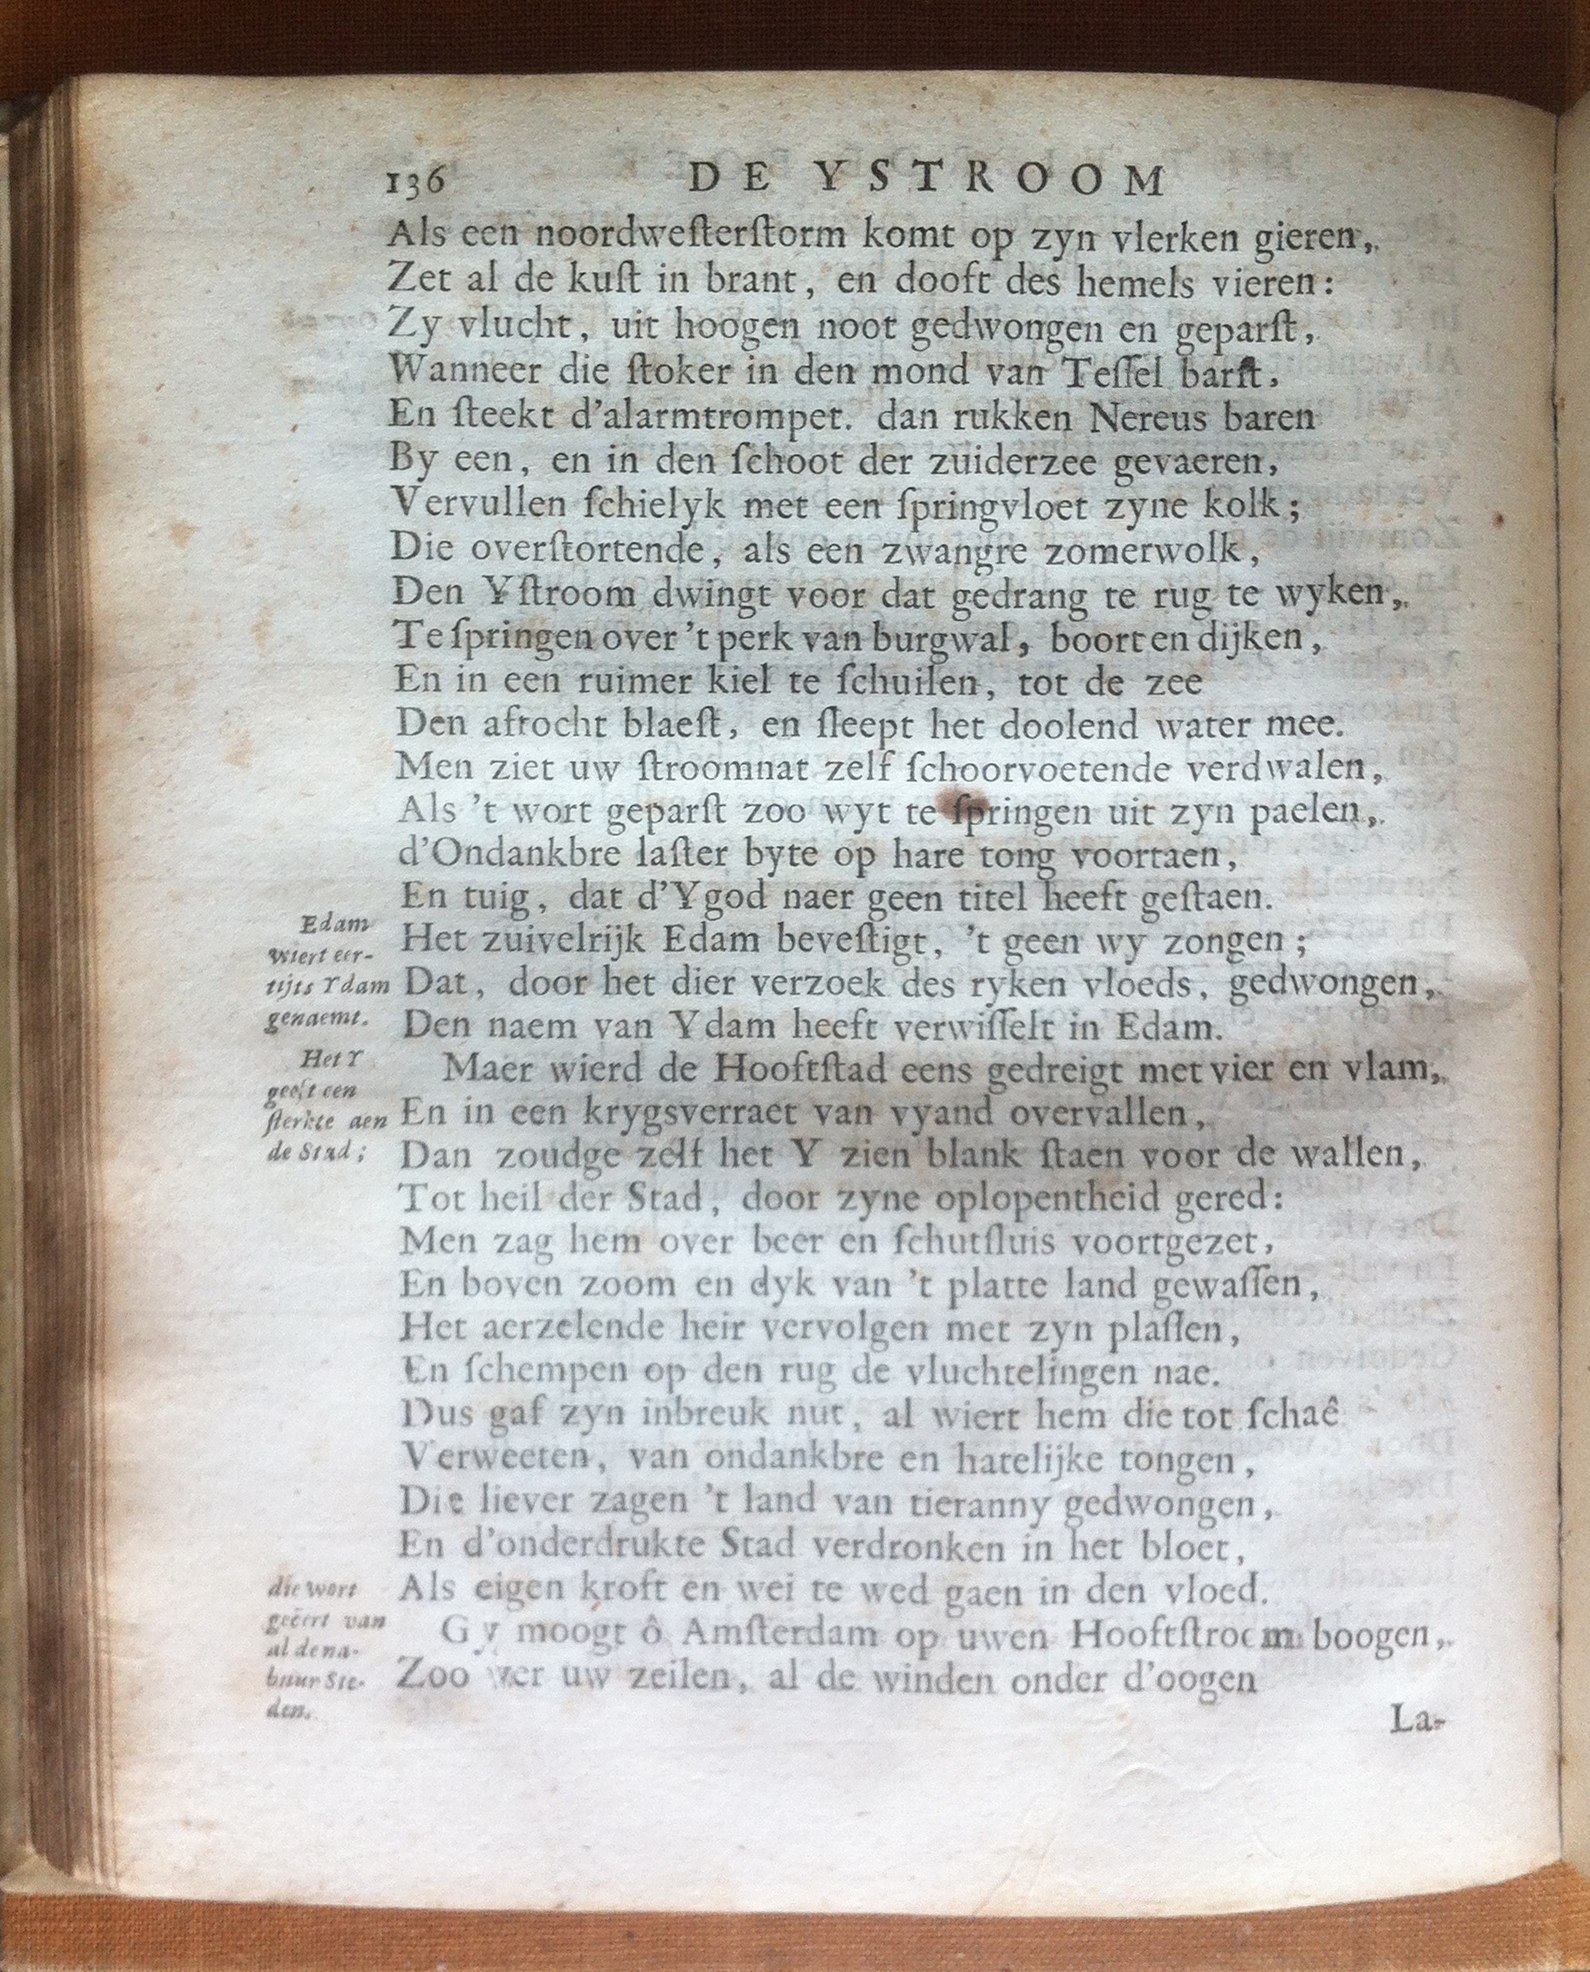 136 DE YSTROOM
Als een noordweſterſtorm komt op zyn vlerken gieren,
Zet al de kuſt in brant, en dooft des hemels vieren:
Zy vlucht, uit hoogen noot gedwongen en geparſt,
Wanneer die ſtoker in den mond van Teſſel barſt,
En ſteekt d'alarmtrompet. dan rukken Nereus baren
By een, en in den ſchoot der zuiderzee gevaeren,
Vervullen ſchielyk met een ſpringvloet zyne kolk;
Die overſtortende, als een zwangre zomerwolk,
Den Yſtroom dwingt voor dat gedrang te rug te wyken,
Te ſpringen over 't perk van burgwal, boort en dijken,
En in een ruimer kiel te ſchuilen, tot de zee
Den aftocht blaeſt, en ſleept het doolend water mee.
Men ziet uw ſtroomnat zelf ſchoorvoetende verdwalen,
Als 't wort geparſt zoo wyt te ſpringen uit zyn paelen,
d'Ondankbre laſter byte op hare tong voortaen,
En tuig, dat d'Ygod naer geen titel heeft geſtaen.
Edam
wiert eer-
tijts Ydam
genaemt.
Het zuivelrijk Edam beveſtigt, 't geen wy zongen;
Dat, door het dier verzoek des ryken vloeds, gedwongen,
Den naem van Ydam heeft verwiſſelt in Edam.
Het Y
geeft een
ſterkte aen
de Stad;
Maer wierd de Hooftſtad eens gedreigt met vier en vlam,
En in een krygsverraet van vyand overvallen,
Dan zoudge zelf het Y zien blank ſtaen voor de wallen,
Tot heil der Stad, door zyne oplopentheid gered:
Men zag hem over beer en ſchutſluis voortgezet,
En boven zoom en dyk van 't platte land gewaſſen,
Het aerzelende heir vervolgen met zyn plaſſen,
En ſchempen op den rug de vluchtelingen nae.
Dus gaf zyn inbreuk nut, al wiert hem die tot ſchaê
Verweeten, van ondankbre en hatelijke tongen,
Die liever zagen 't land van tieranny gedwongen,
En d'onderdrukte Stad verdronken in het bloet,
Als eigen kroft en wei te wed gaen in den vloed.
die wort
geëert van
al de na-
buur Ste-
den.
Gy moogt ô Amſterdam op uwen Hooftſtroom boogen,
Zoo ver uw zeilen, al de winden onder d'oogen
La-